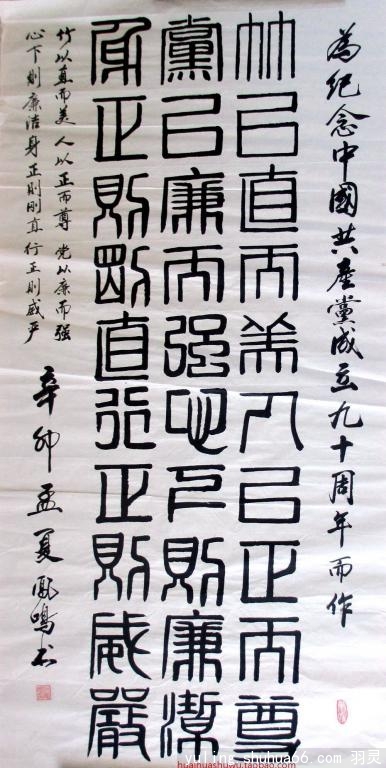 為紀念中國共產黨成立九十周年而作
竹以直而美人以正而尊
黨以廉而強心下則廉潔
身正則剛直行正則威嚴
竹以直而美 人以正而尊 党以廉而强
心下则廉洁 身正则刚直 行正则威严
辛卯孟夏鳳鳴书
yuling.shuhua66.com 羽灵
huaihuashuwu.taobao.com